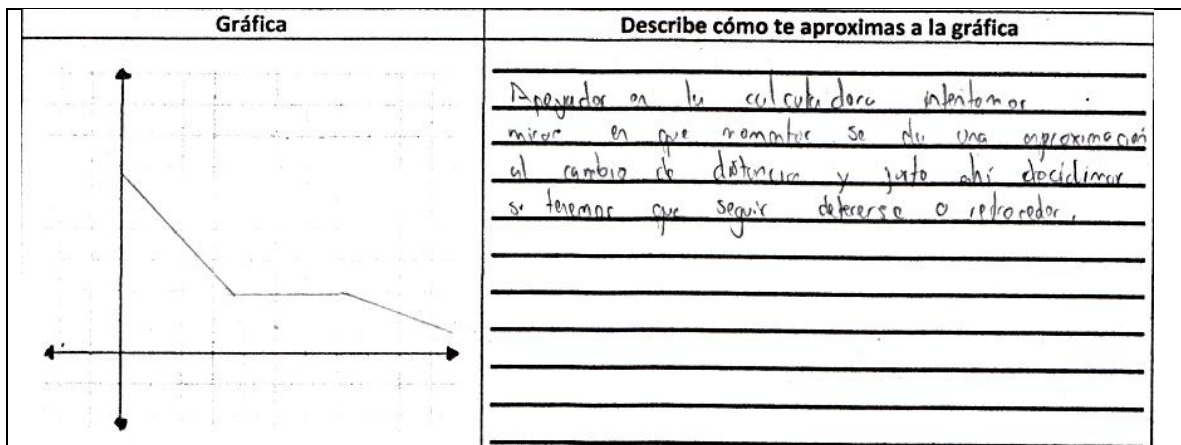 Gráfica
Describe cómo te aproximas a la gráfica
Apoyados en la calculadora intentamos
mirar en que momentos se da una aproximación
al cambio de distancia y justo ahí decidimos
si tenemos que seguir detenerse o retroceder.